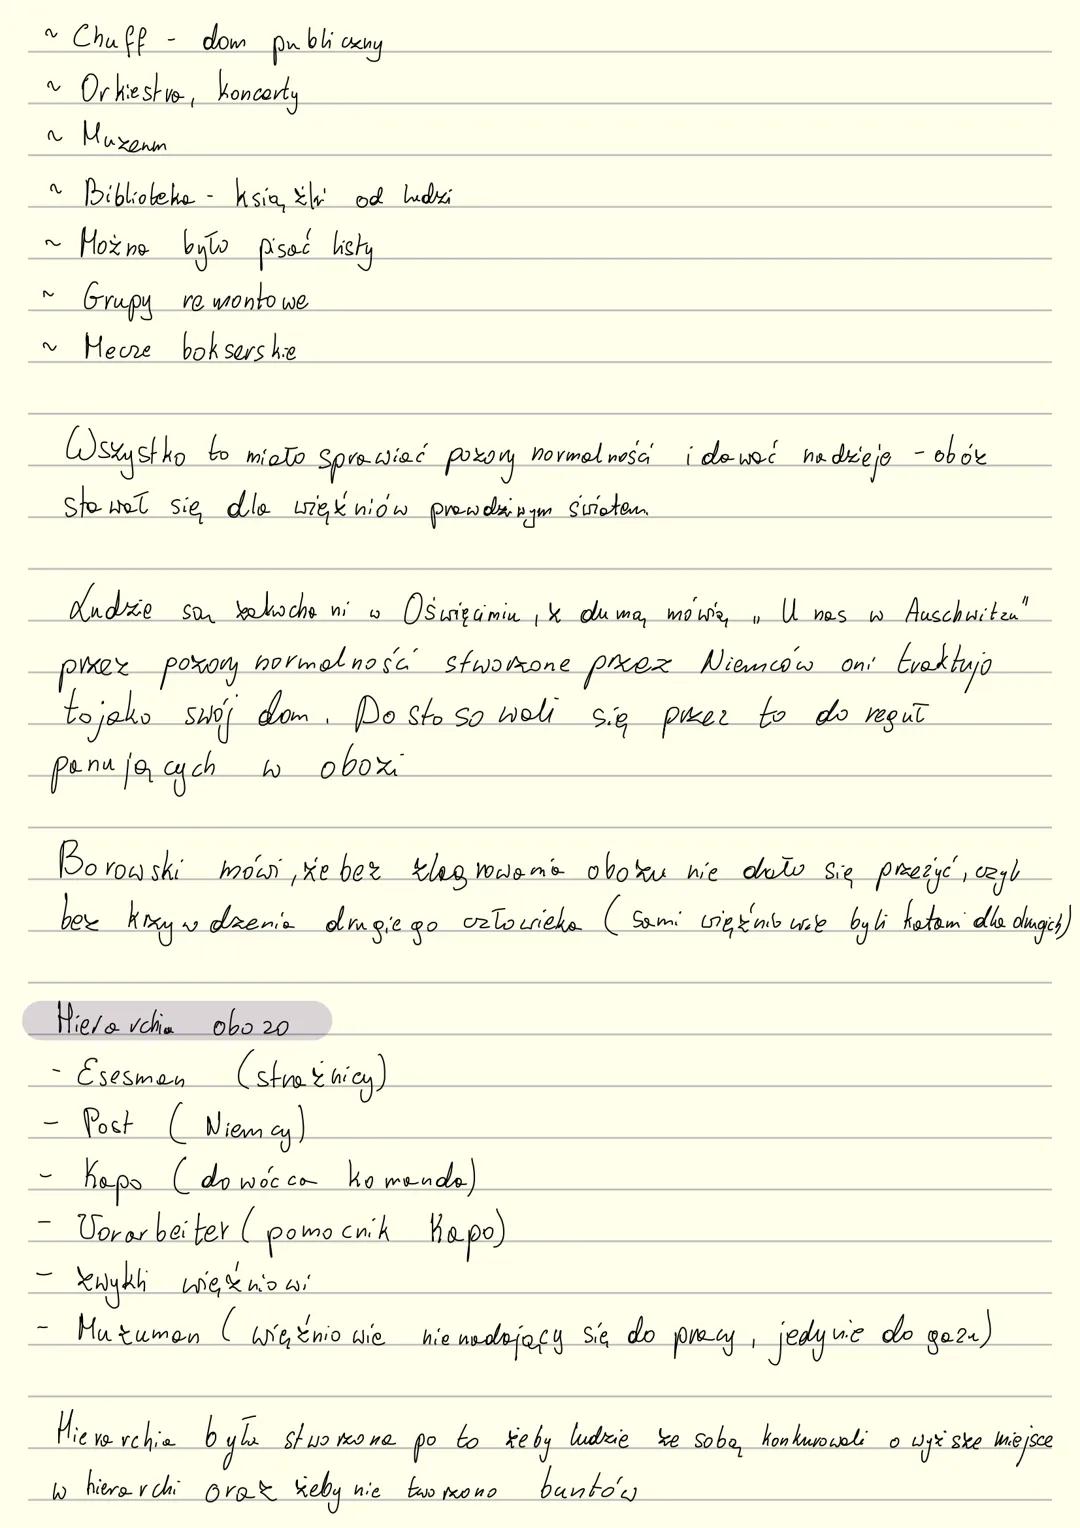 ~ Chuff - dom publiczny
~ Orkiestra, koncerty
~ Muzeum
~ Biblioteka - książki od ludzi
~ Można było pisać listy
~ Grupy remontowe
~ Mecze bokserskie
Wszystko to miało sprawiać pozory normalności i dawać nadzieje - obóz
stawał się dla więźniów prawdziwym światem.
Ludzie są zakochani w Oświęcimiu, z dumą mówią „U nas w Auschwitzu"
przez pozory normalności stworzone przez Niemców oni traktują
to jako swój dom. Dostosowali się przez to do reguł
panujących w obozi
Borowski mówi, że bez zlagrowania obozu nie dało się przeżyć, czyli
bez krzywdzenia drugiego człowieka (sami więźniowie byli katami dla drugich)
Hierarchia obozo
- Esesman (strażnicy)
- Post (Niemcy)
- Kapo (dowódca komanda)
- Vorarbeiter (pomocnik Kapo)
- zwykli więźniowi
- Muzuman (więźniowie nie nadający się do pracy, jedynie do gazu)
Hierarchia była stworzona po to żeby ludzie ze sobą konkurowali o wyższe miejsce
w hierarchi oraz żeby nie tworzono buntów